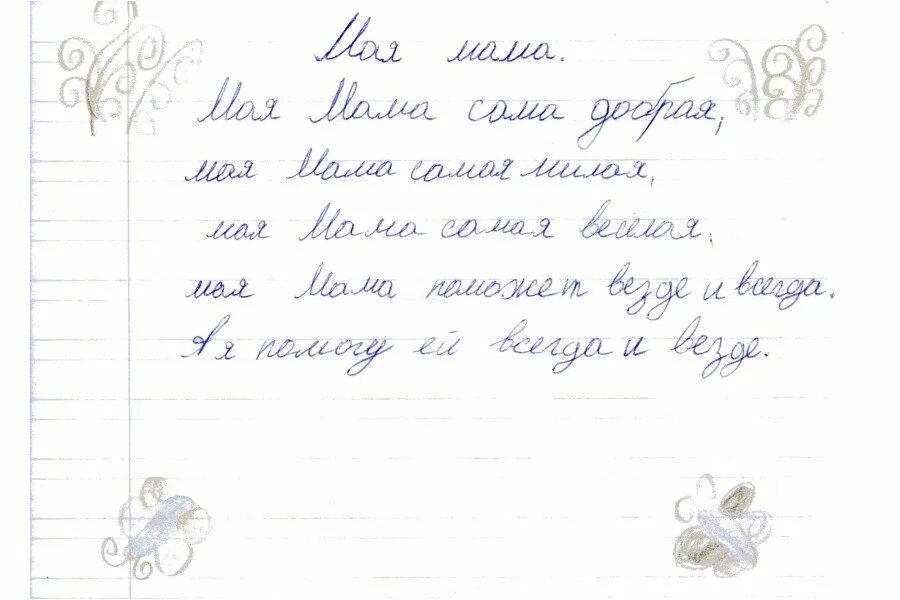 Моя мама.
Моя Мама сама добрая,
моя Мама самая милая,
моя Мама самая весёлая,
моя Мама поможет везде и всегда.
А я помогу ей всегда и везде.